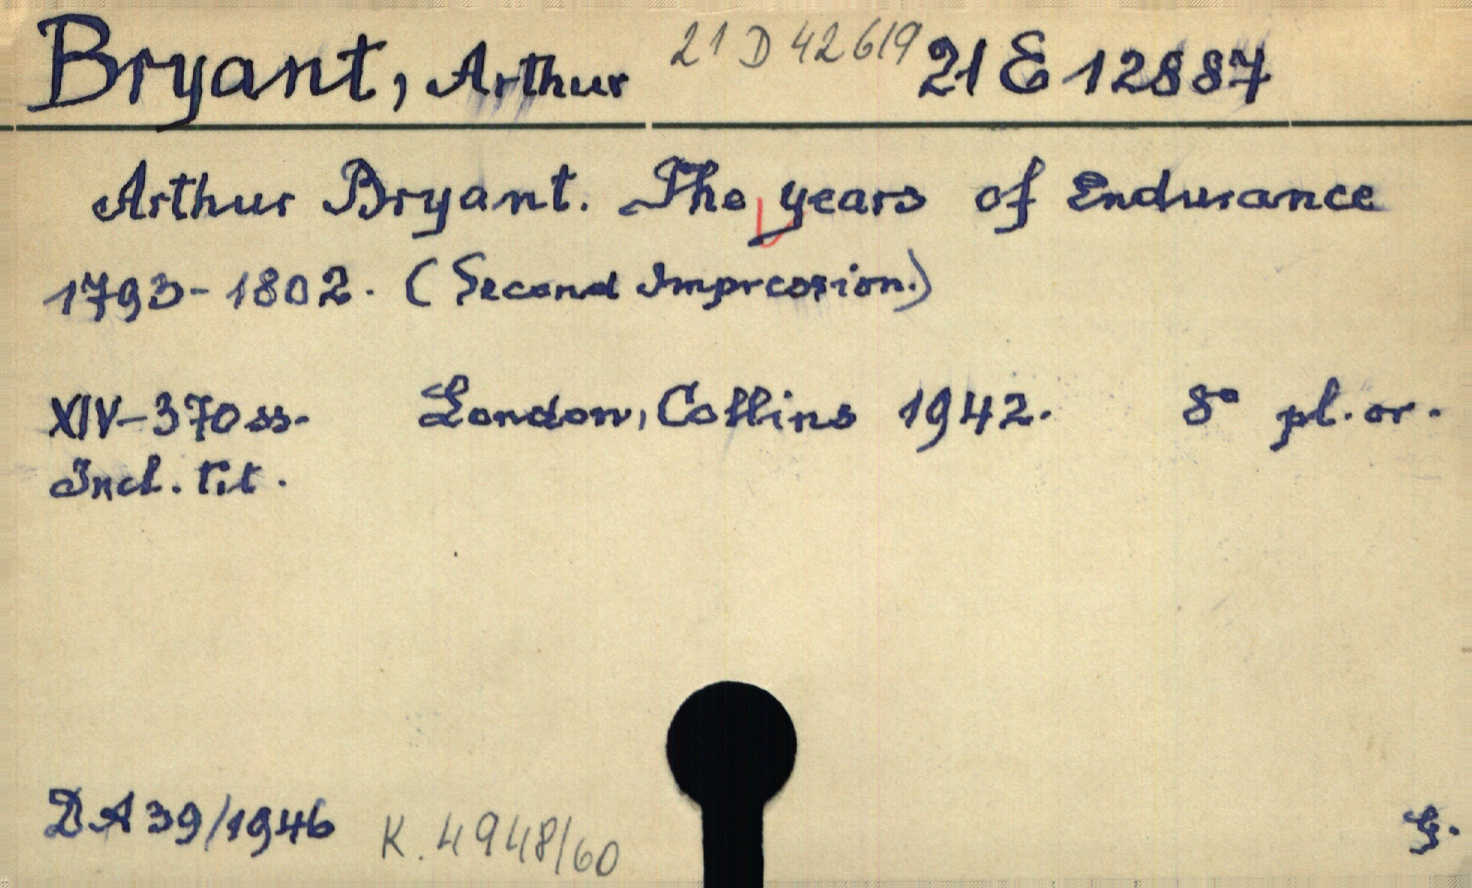 Bryant, Arthur 21 D 42619 21 E 12887
Arthur Bryant. The years of Endurance
1793-1802. (Second Impression.)
XIV-370 ss. London, Collins 1942. 8° pl. or.
Incl. tit.
DA 39/1946 K. 4948/60